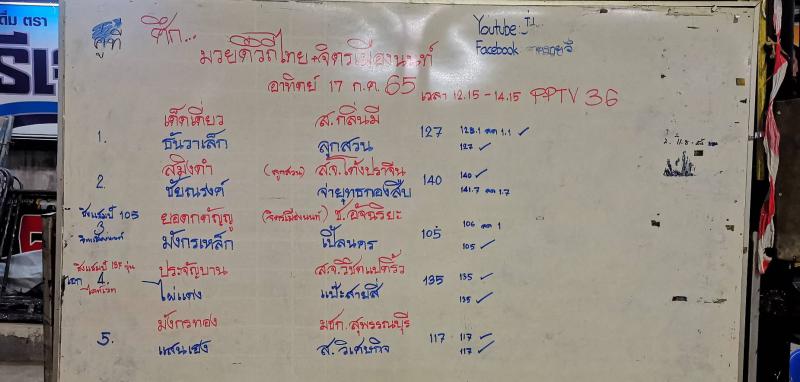 ดื่ม ตรา
คู่ที่
ศึก...
มวยดีวิถีไทย+จิตรเมืองนนท์
อาทิตย์ 17 ก.ค. 65 เวลา 12.15 - 14.15 PPTV 36
Youtube
Facebook
1. เด็ดเดี่ยว ส.กลิ่นมี 127 128.1 ลด 1.1 ✓
ธันวาเล็ก ลูกสวน 127 ✓
2. สมิงดำ (ลูกสวน) ส.จ.โต้งปราจีน 140 140 ✓
ชัยณรงค์ จ่ายุทธกองสืบ 141.7 ลด 1.7
ชิงแชมป์ 105 ยอดกตัญญู (จิตรเมืองนนท์) ช.อัจฉริยะ 105 106 ลด 1
3 จิตรเมืองนนท์ มังกรเหล็ก เปี๊ลนคร 105 ✓
ชิงแชมป์ 135 รุ่น ประจัญบาน ส.จ.วิชิตแปดริ้ว 135 135 ✓
4. ไลท์เวท ไผ่แดง แป๊ะสายสี่ 135 ✓
5. มังกรทอง มชก.สุพรรณบุรี 117 117 ✓
แสนเฮง ส.วิเศษกิจ 117 ✓